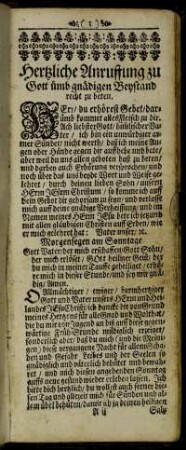 ( 1 )
Hertzliche Anruffung zu
Gott ümb gnädigen Beystand
recht zu beten.
HErr / du erhörest Gebet / dar-
ümb kommet alles Fleisch zu dir.
Ach liebster Gott / himlischer Va-
ter / ich bin ein unwürdiger ar-
mer Sünder nicht werth / daß ich meine Au-
gen oder Hände gegen dir auffhebe und bete /
aber weil du uns allen geboten hast zu beten /
und darben auch Erhörung versprochen / und
noch über das uns beyde Wort und Weise ge-
lehret / durch deinen lieben Sohn / unsern
HErrn JEsum Christum / so komme ich auff
dein Gebot dir gehorsam zu seyn / und verlasse
mich auff deine gnädige Verheissung / und im
Namen meines HErrn JEsu bete ich jetzund
mit allen gläubigen Christen auff Erden / wie
er mich gelehret hat: Vater unser / ꝛc.
Morgensegen am Sonntage
Gott Vater der mich erschaffen / Gott Sohn /
der mich erlöset / GOtt heiliger Geist / der
du mich in meiner Tauffe geheiliget /
re mich in diese Stunde und sey mir gnä-
dig / Amen.
O Allmächtiger / ewiger / barmhertziger
Gott und Vater unsers HErrn und Hei-
landes JEsu Christi ich dancke dir
HErrn für alle Gnad und Wolthat /
die du mir von Jugend an bis auff diese gegen-
wärtige Früh-Stunde mildiglich erzeiget /
sonderlich aber / daß du mich (und die Meini-
gen / ) diese vergangene Nacht für allem Scha-
den und Gefahr Leibes und der Seelen so
gnädiglich und väterlich behütet und bewah-
ret / und mich diesen angehenden Sonntag
auffs neue gesund wieder erleben lassen. Ich
bitte dich hertzlich / du wollest auch ferner diesen
Tag und allezeit mich für Sünden und al-
lem übel behüten / damit ich in deinem heiligen
A ij